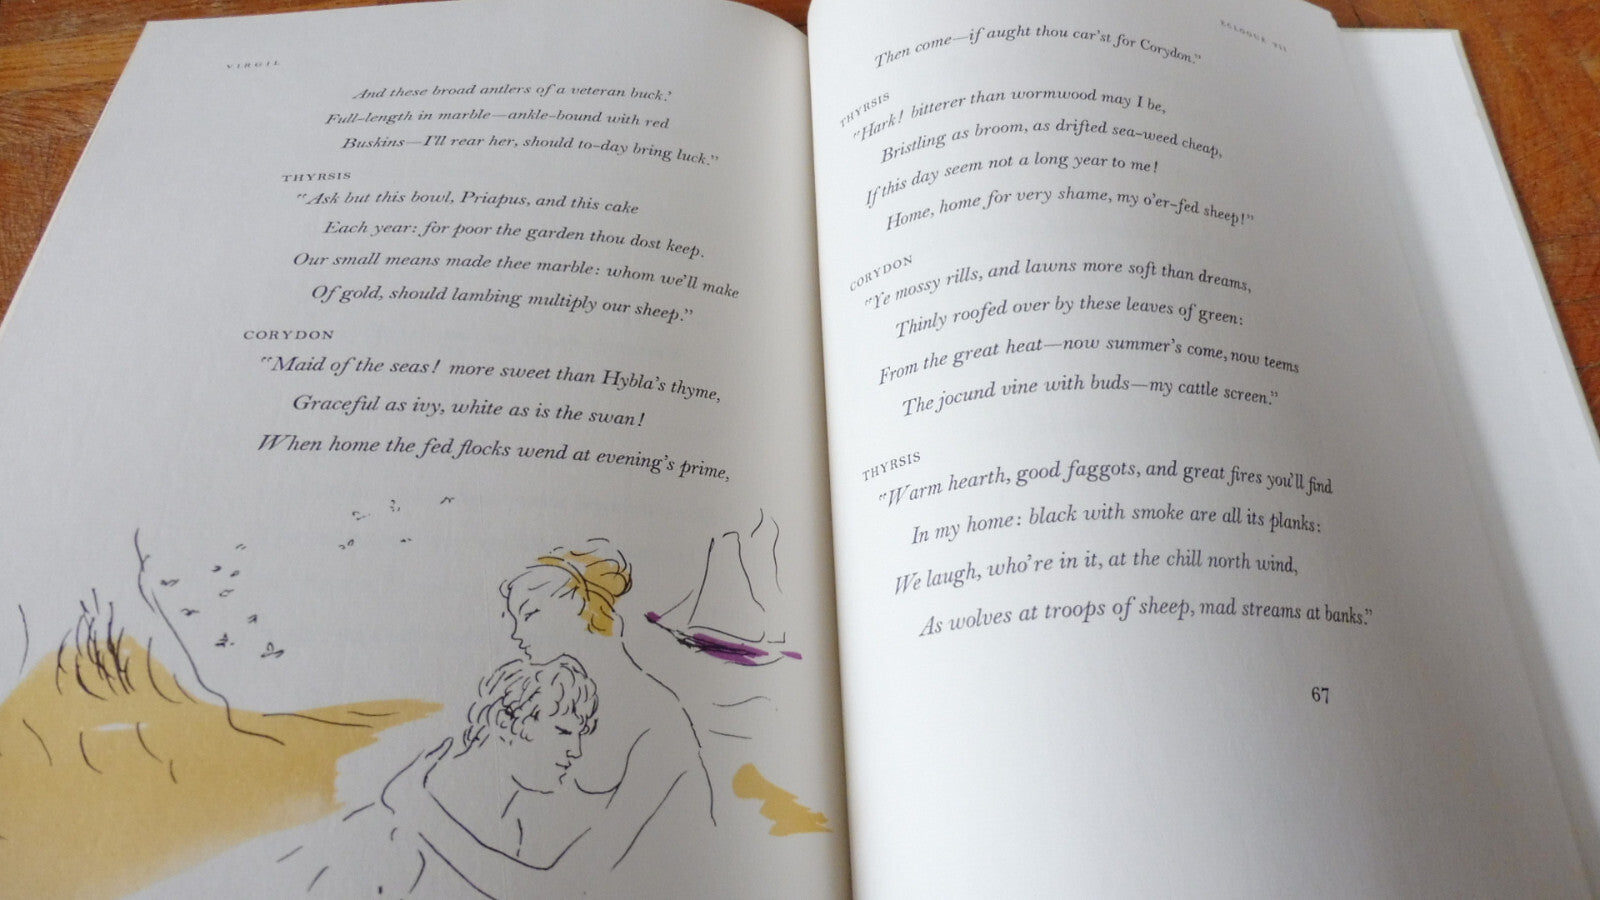 VIRGIL
And these broad antlers of a veteran buck.'
Full-length in marble—ankle-bound with red
Buskins—I'll rear her, should to-day bring luck."
THYRSIS
"Ask but this bowl, Priapus, and this cake
Each year: for poor the garden thou dost keep.
Our small means made thee marble: whom we'll make
Of gold, should lambing multiply our sheep."
CORYDON
"Maid of the seas! more sweet than Hybla's thyme,
Graceful as ivy, white as is the swan!
When home the fed flocks wend at evening's prime,
ECLOGUE VII
Then come—if aught thou car'st for Corydon."
THYRSIS
"Hark! bitterer than wormwood may I be,
Bristling as broom, as drifted sea-weed cheap,
If this day seem not a long year to me!
Home, home for very shame, my o'er-fed sheep!"
CORYDON
"Ye mossy rills, and lawns more soft than dreams,
Thinly roofed over by these leaves of green:
From the great heat—now summer's come, now teems
The jocund vine with buds—my cattle screen."
THYRSIS
"Warm hearth, good faggots, and great fires you'll find
In my home: black with smoke are all its planks:
We laugh, who're in it, at the chill north wind,
As wolves at troops of sheep, mad streams at banks."
67